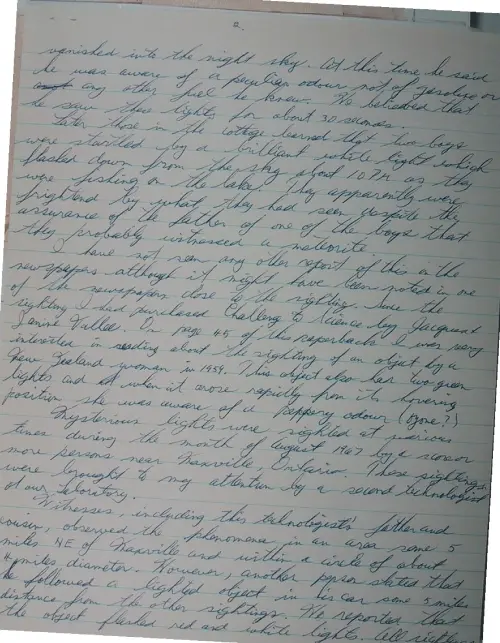 2.
vanished into the night sky. At this time he said
he was aware of a peculiar odour not of gasoline or
any other fuel he knew. He believed that
he saw the lights for about 30 seconds.
Later those in the cottage learned that two boys
were startled by a brilliant white light which
flashed down from the sky about 10 PM as they
were fishing on the lake. They apparently were
frightend by what they had seen despite the
assurance of the father of one of the boys that
they probably witnessed a meteorite.
I have not seen any other report of this in the
newspapers although it might have been noted in one
of the newspapers close to the sighting. Since the
sighting I had purchased Challeng to Science by Jacques &
Janine Vallee. In page 45 of this paperback I was very
interested in reading about the sighting of an object by a
New Zealand women in 1959. This object also had two green
lights and when it arose rapidly from its hovering
position she was aware of a peppery odour (Ozone?)
Mysterious lights were sighted at various
times during the month of August 1967 by a dozen or
more persons near Maxville, Ontario. These sightings
were brought to my attention by a second technologist
at our laboratory.
Witnesses, including this technologists' father and
cousin, observed the phenomena in an area some 5
miles NE of Maxville and within a circle of about
4 miles diameter. However, another person stated that
he followed a lighted object in his car some 5 miles
distance from the other sightings. He reported that
the object flashed red and white lights. All